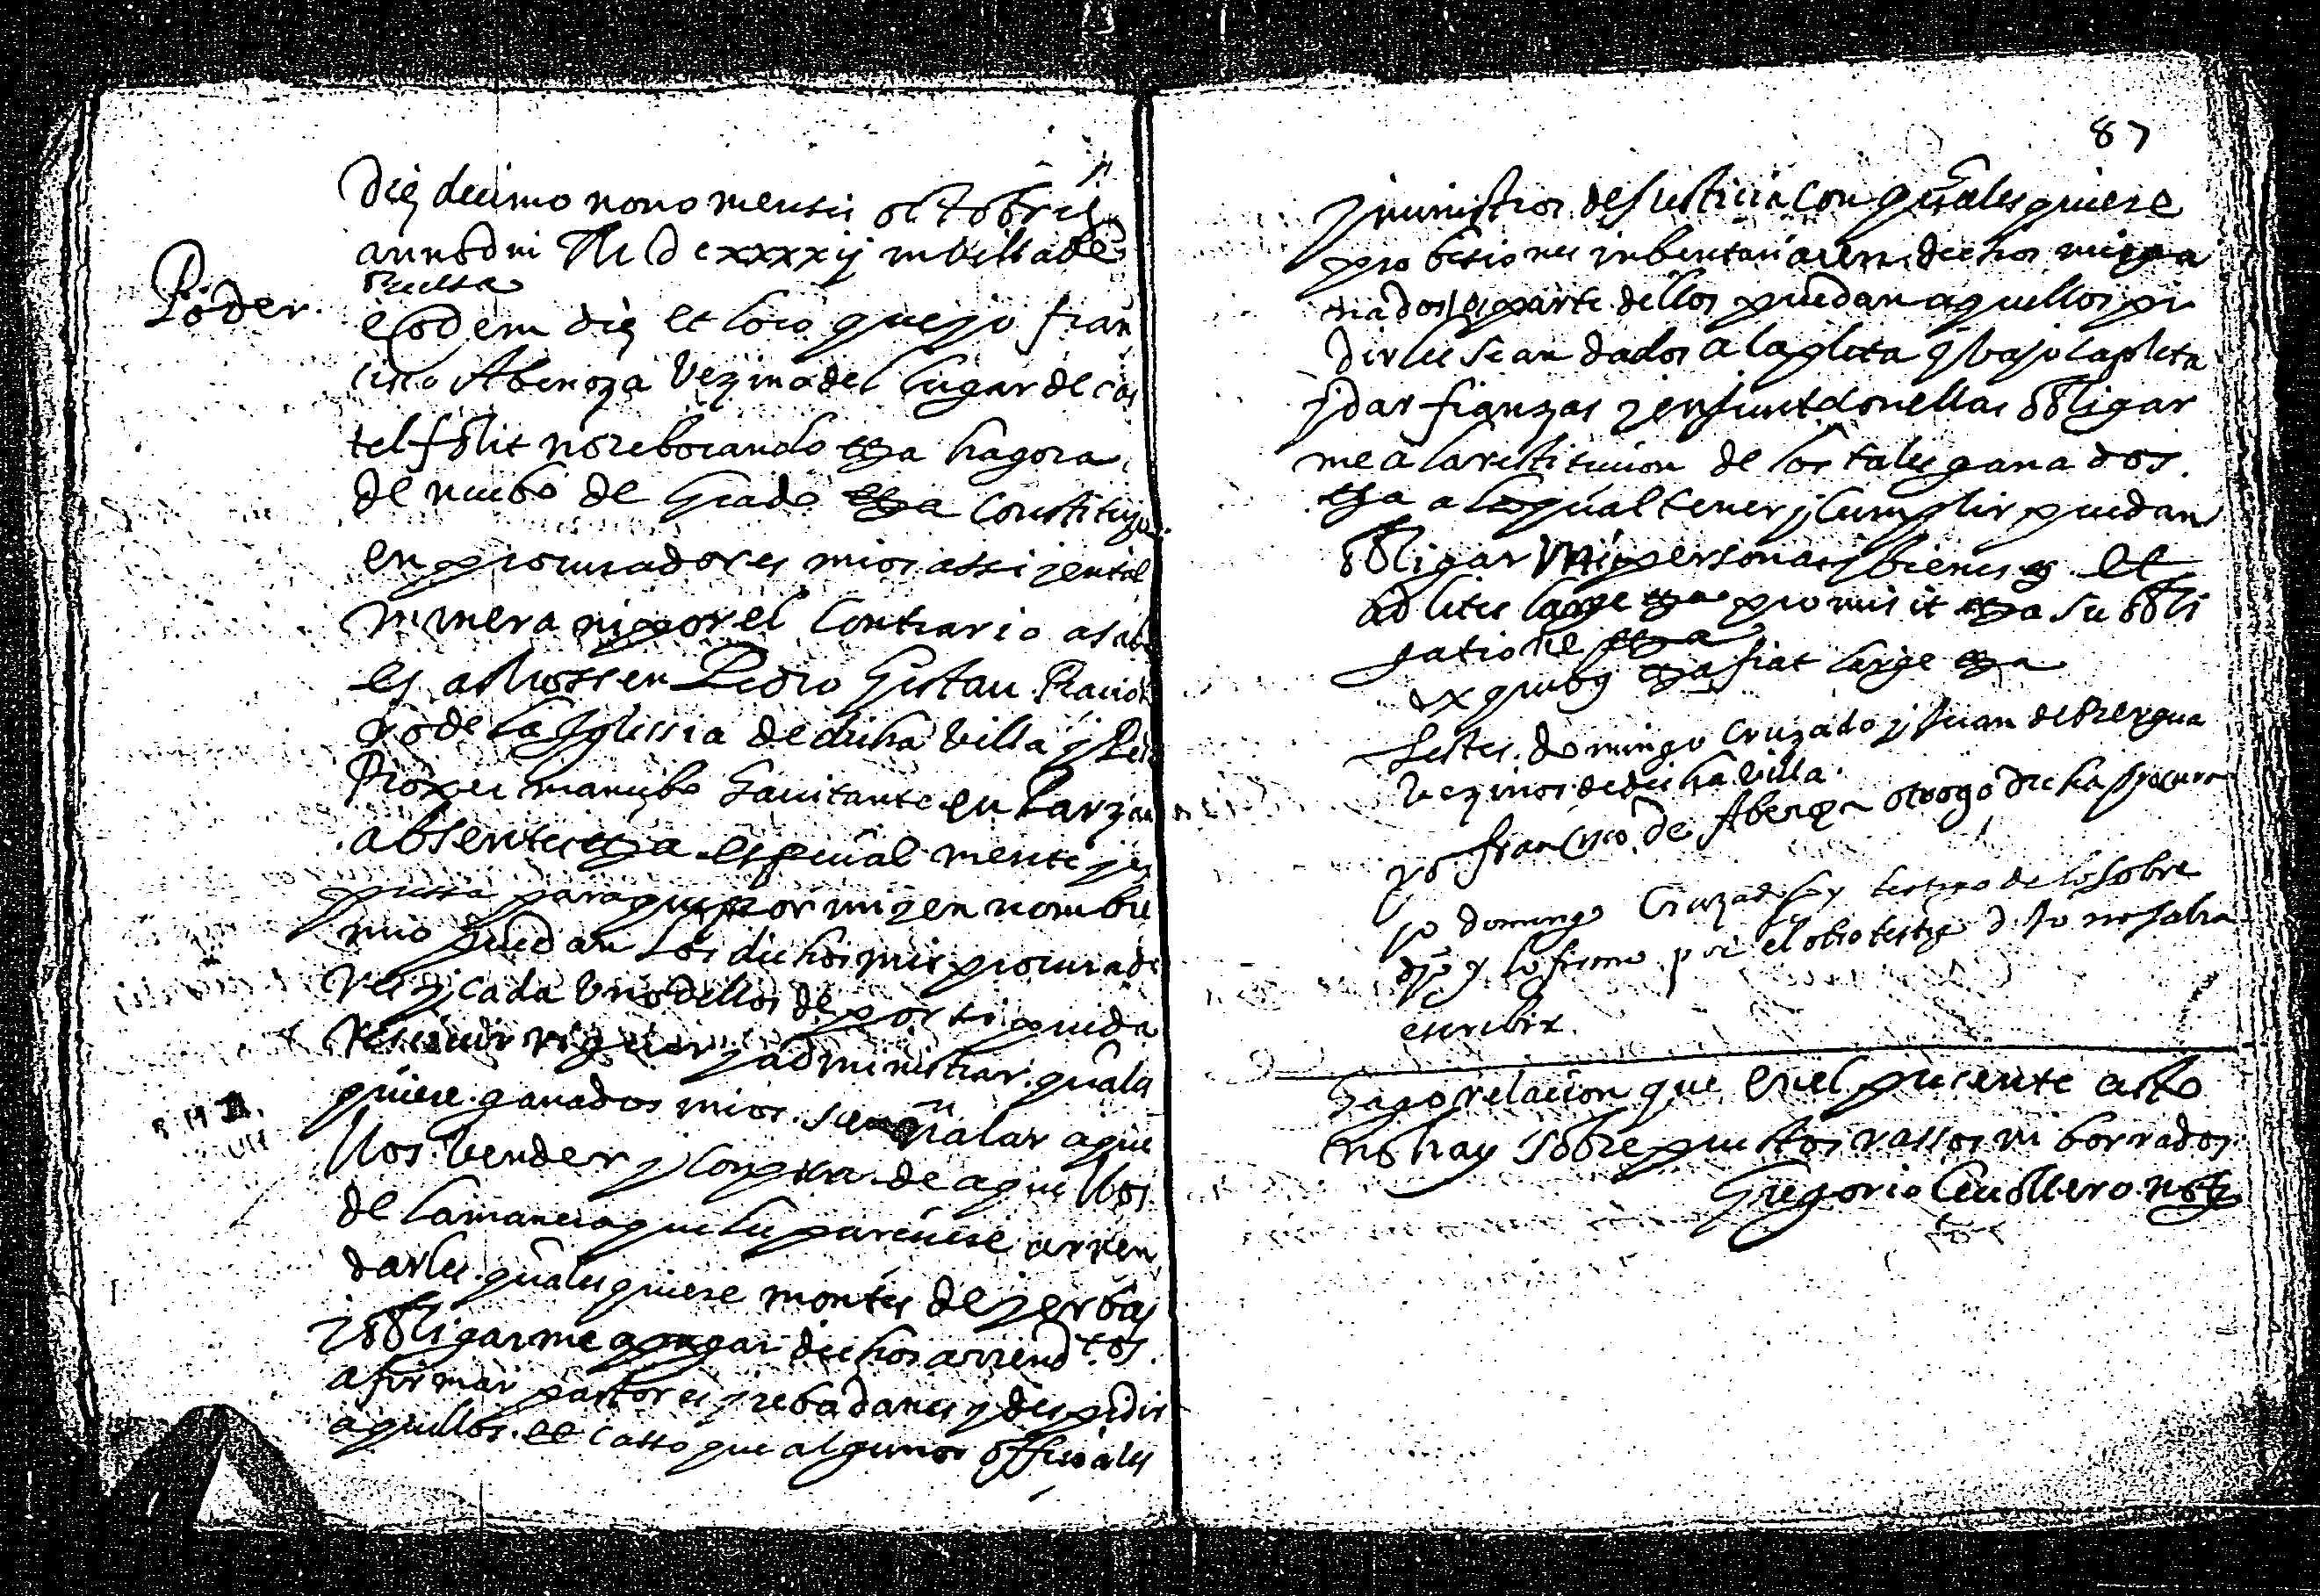 Die decimo nono mensis octobris
anno dni M.DCxxxxij in villa de
Poder.
eodem die et loco que yo fran
cisco Abenoza vezino del lugar de cas
telfollit no rebocando etza hagora
de nuebo de Grado etza Constituyo
en procuradores mios assi y en tal
manera ni por el Contrario asabe
es a Mossen Pedro Gistau Racion
ro de la Iglessia de dicha villa y
habitante en
absentes etza especial mente y es
pressa para que por mi y en nombre
mio puedan los dichos mis procurado
res y cada uno dellos de por si pueda
regir y administrar quales
quiere ganados mios señalar aque
llos vender y compra de aquellos
de la manera que les pareciere arren
darles quales quiere montes de yerbas
y obligarme a pagar dichos arrendtos
afirmar pastores y rebadanes y despidir
aquellos et casso que algunos officiales
87
y ministros de justicia con quales quiere
probisiones inbentariaren dichos mis ga
nados o parte dellos puedan aquellos pi
dir les sean dados a la pleta y bajo la pleta
y dar fianzas y en junt don ellas obligar
me a la restitucion de los tales ganados
etza a lo qual tener y Cumplir puedan
obligar mi persona y bienes et
ad lites large etza promisit etza su obli
gatione etza
Ex quibus etza fiat large etza
Testes domingo Cruzado y Juan de Bergua
vezinos de dicha villa.
yo francisco de Abenoza otorgo dicha procura
yo domingo Cruzado soy testigo de lo sobre
djo y lo firmo por el otro testigo q dijo no sabia
escribir
hago relacion que en el presente acto
no hay sobre puestos rassos ni borrados
Gregorio